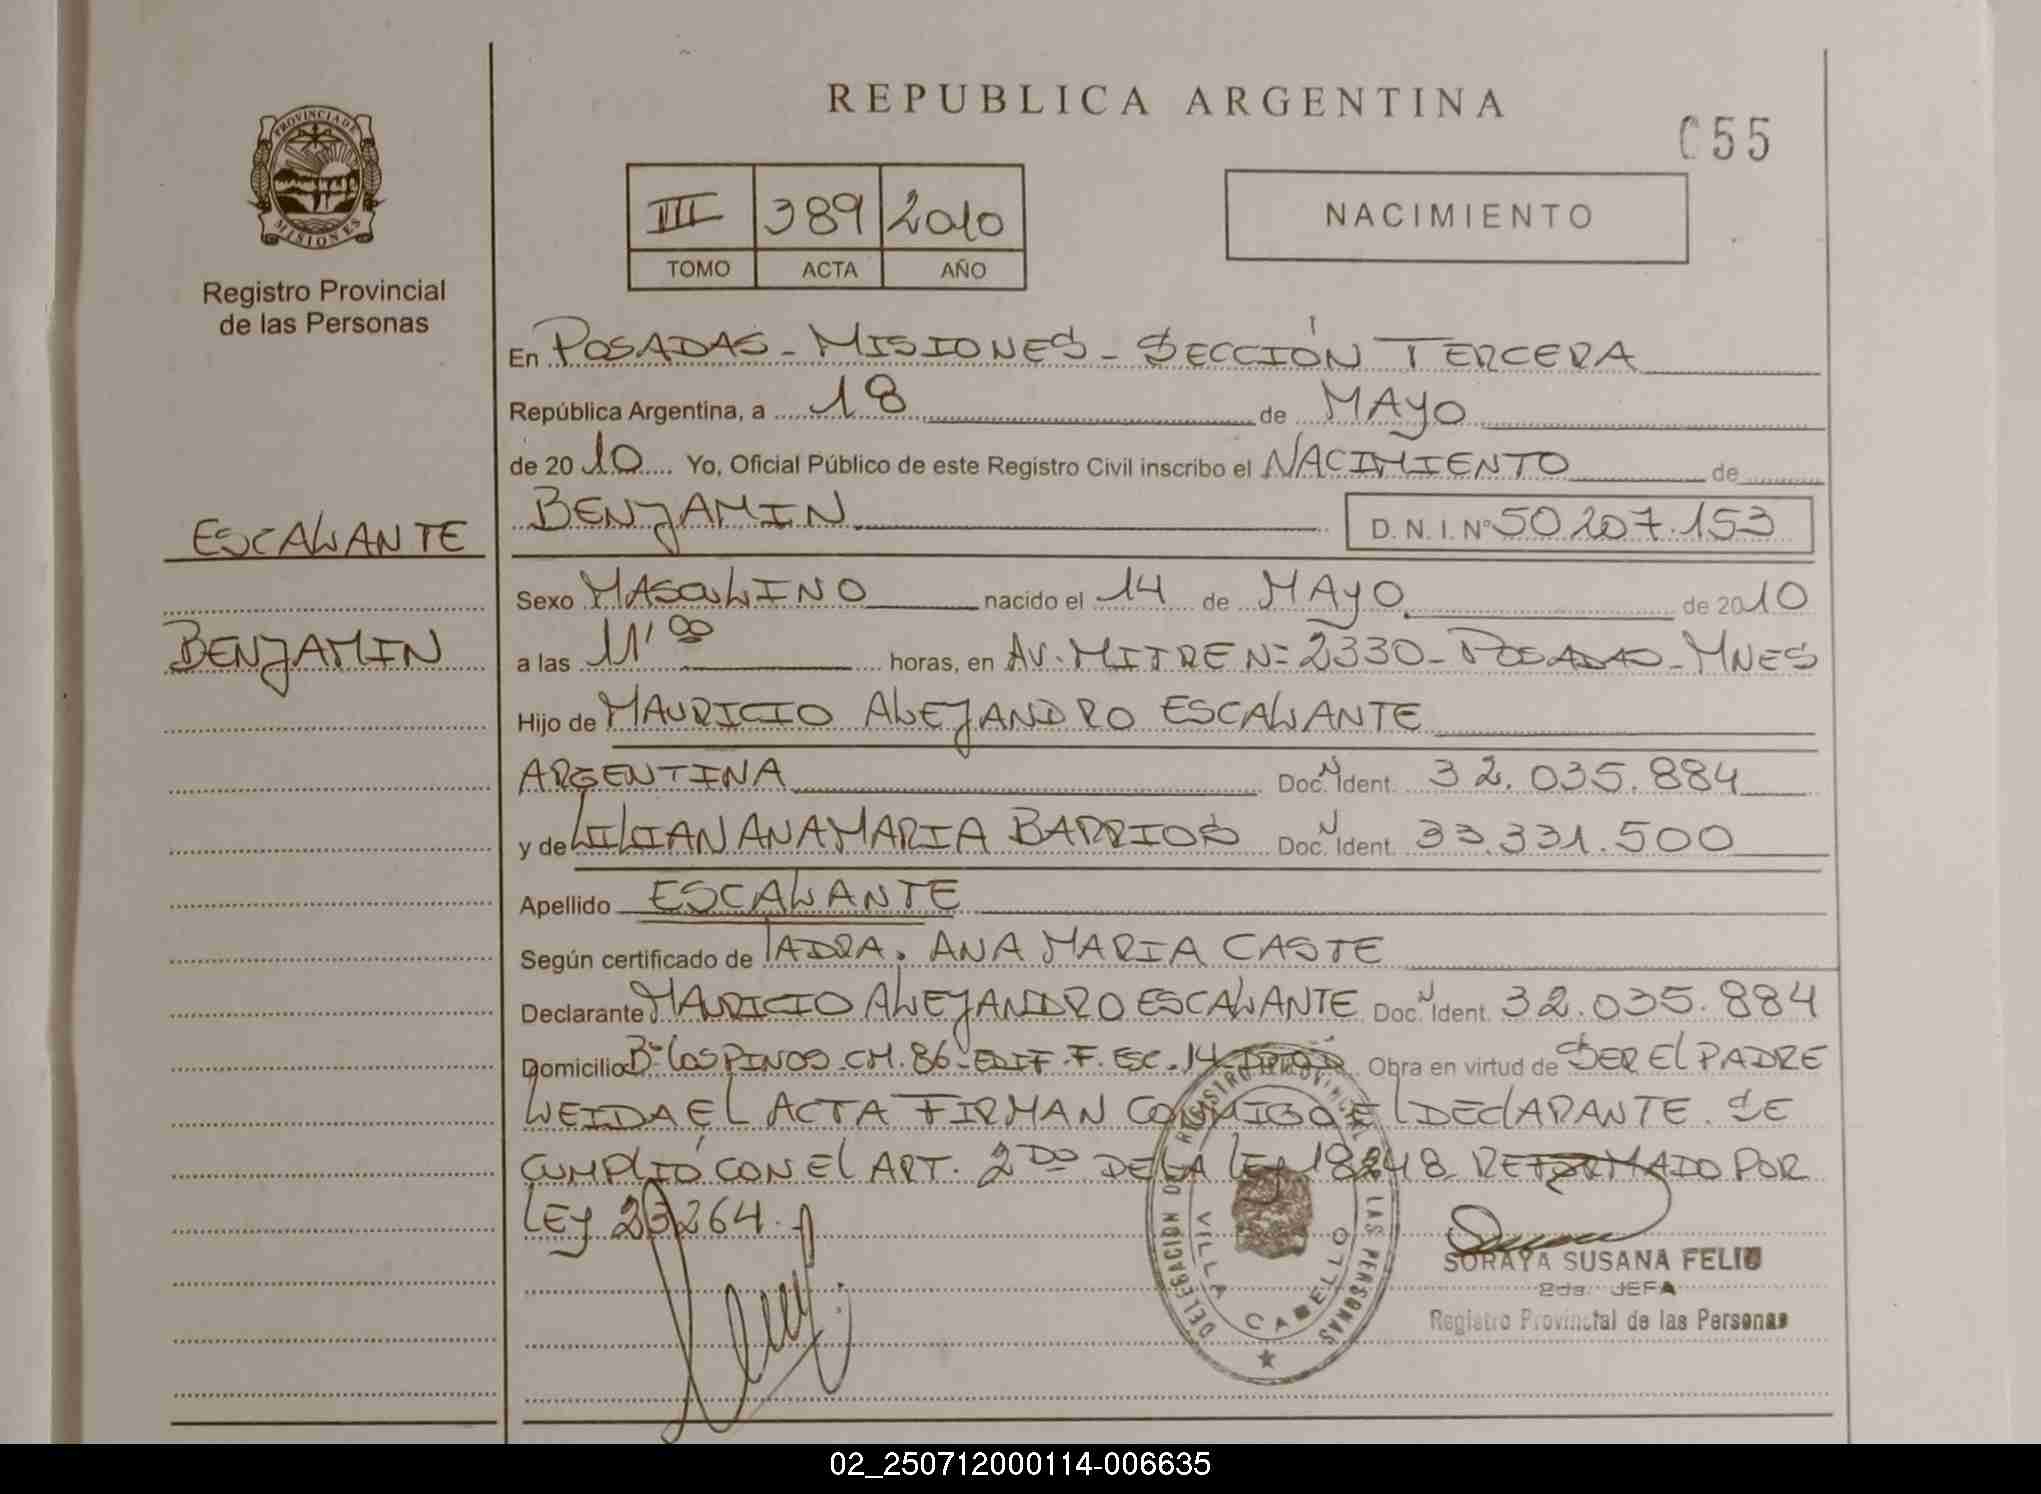 REPUBLICA ARGENTINA
C55
PROVINCIA DE
MISIONES
Registro Provincial
de las Personas
III 389 2010
TOMO ACTA AÑO
NACIMIENTO
En POSADAS - MISIONES - SECCIÓN TERCERA
República Argentina, a 18 de MAYO
de 2010 Yo, Oficial Público de este Registro Civil inscribo el NACIMIENTO de
ESCALANTE
BENJAMIN D. N. I. Nº 50.207.153
Sexo MASCULINO nacido el 14 de MAYO de 2010
BENJAMIN
a las 11'00 horas, en AV. MITRE Nº 2330 - POSADAS - MNES
Hijo de MAURICIO ALEJANDRO ESCALANTE
ARGENTINA Doc. N Ident. 32.035.884
y de LILIAN ANAMARIA BARRIOS Doc. N Ident. 33.331.500
Apellido ESCALANTE
Según certificado de ADRA. ANA MARIA CASTE
Declarante MAURICIO ALEJANDRO ESCALANTE Doc. N Ident. 32.035.884
Domicilio Bº LOS PINOS CH. 86 - EDIF. F. ESC. 14 Obra en virtud de SER EL PADRE
LEIDA EL ACTA FIRMAN CONMIGO EL DECLARANTE. SE
CUMPLIÓ CON EL ART. 2DO DE LA LEY 18248 REFORMADO POR
LEY 23264.
DELEGACION DEL REGISTRO PROVINCIAL DE LAS PERSONAS
VILLA CABELLO
SORAYA SUSANA FELIU
2da. JEFA
Registro Provincial de las Personas
02_250712000114-006635